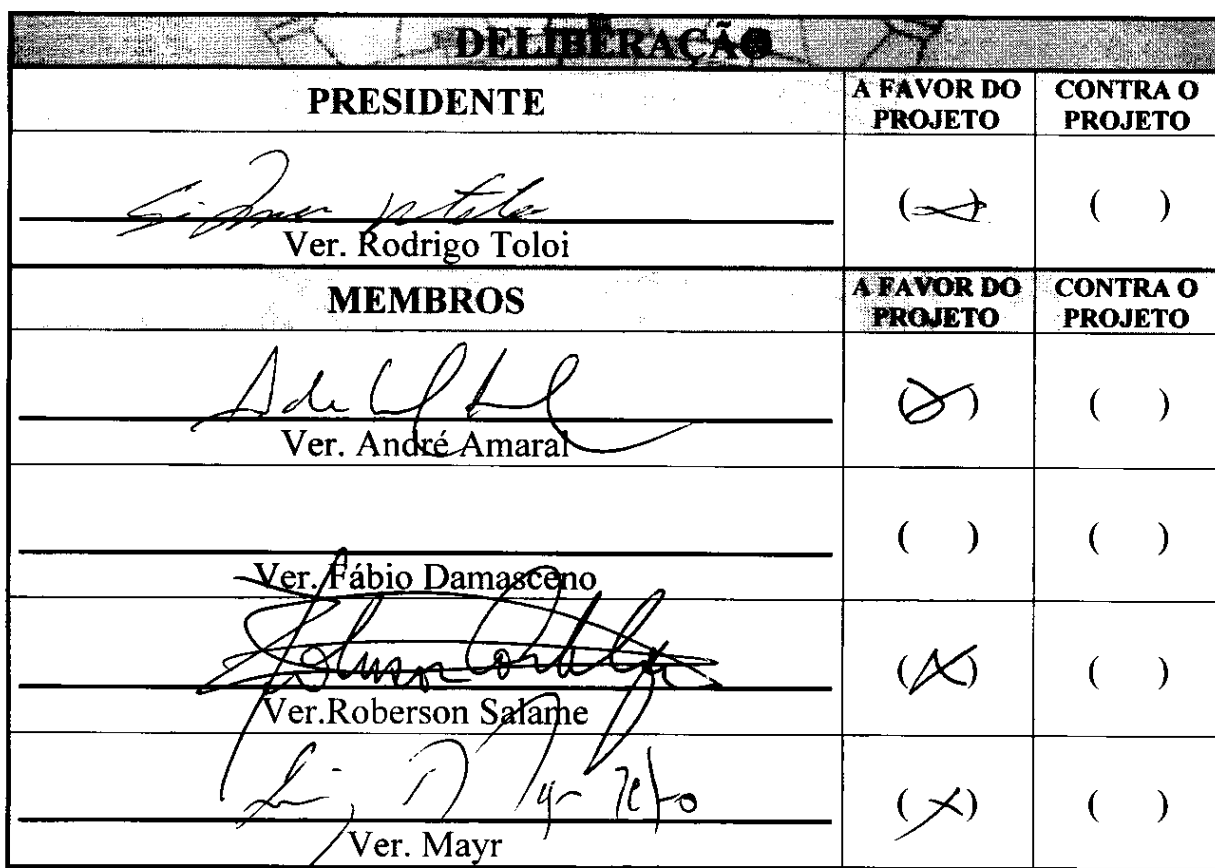 DELIBERAÇÃO
PRESIDENTE
A FAVOR DO PROJETO
CONTRA O PROJETO
( ) ( )
Ver. Rodrigo Toloi
MEMBROS
A FAVOR DO PROJETO
CONTRA O PROJETO
( ) ( )
Ver. André Amaral
( ) ( )
Ver. Fábio Damasceno
(X) ( )
Ver.Roberson Salame
(X) ( )
Ver. Mayr